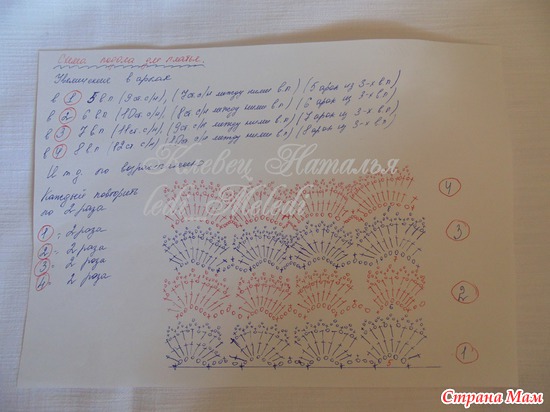 Схема подола для платья.
Увеличение в арках
в 1 5 в п (9 сс с/н), (7 сс с/н между ними в п) (5 арок из 3-х в п)
в 2 6 в п (10 сс с/н), (8 сс с/н между ними в п) (6 арок из 3-х в п)
в 3 7 в п (11 сс с/н), (9 сс с/н между ними в п) (7 арок из 3-х в п)
в 4 8 в п (12 сс с/н), (10 сс с/н между ними в п) (8 арок из 3-х в п)
И т.д. по
Каждый повторить
по 2 раза
1 - 2 раза
2 - 2 раза
3 - 2 раза
4 - 2 раза
Наталья
ledi Meledi
4
3
2
1
5
6
Страна Мам